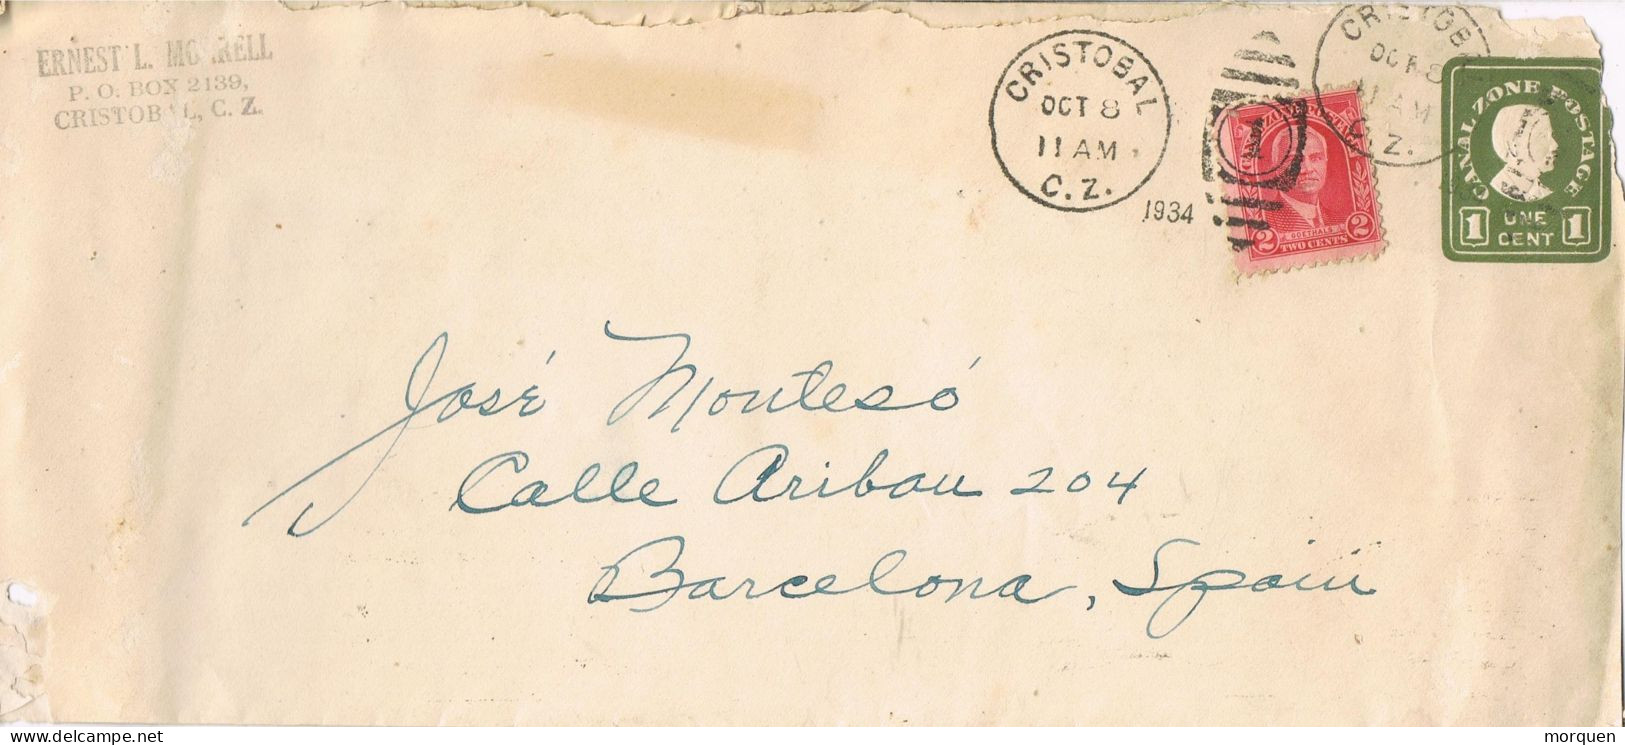 ERNEST L.
P. O. BOX 2139,
CRISTOBAL, C. Z.
CRISTOBAL
OCT 8
11 AM
C. Z.
1934
CANAL ZONE POSTAGE
GOETHALS
2 TWO CENTS 2
CRISTOB
OCT 8
11 AM
C. Z.
CANAL ZONE POSTAGE
1 ONE CENT 1
José Montesó
Calle Aribau 204
Barcelona, Spain
morquen